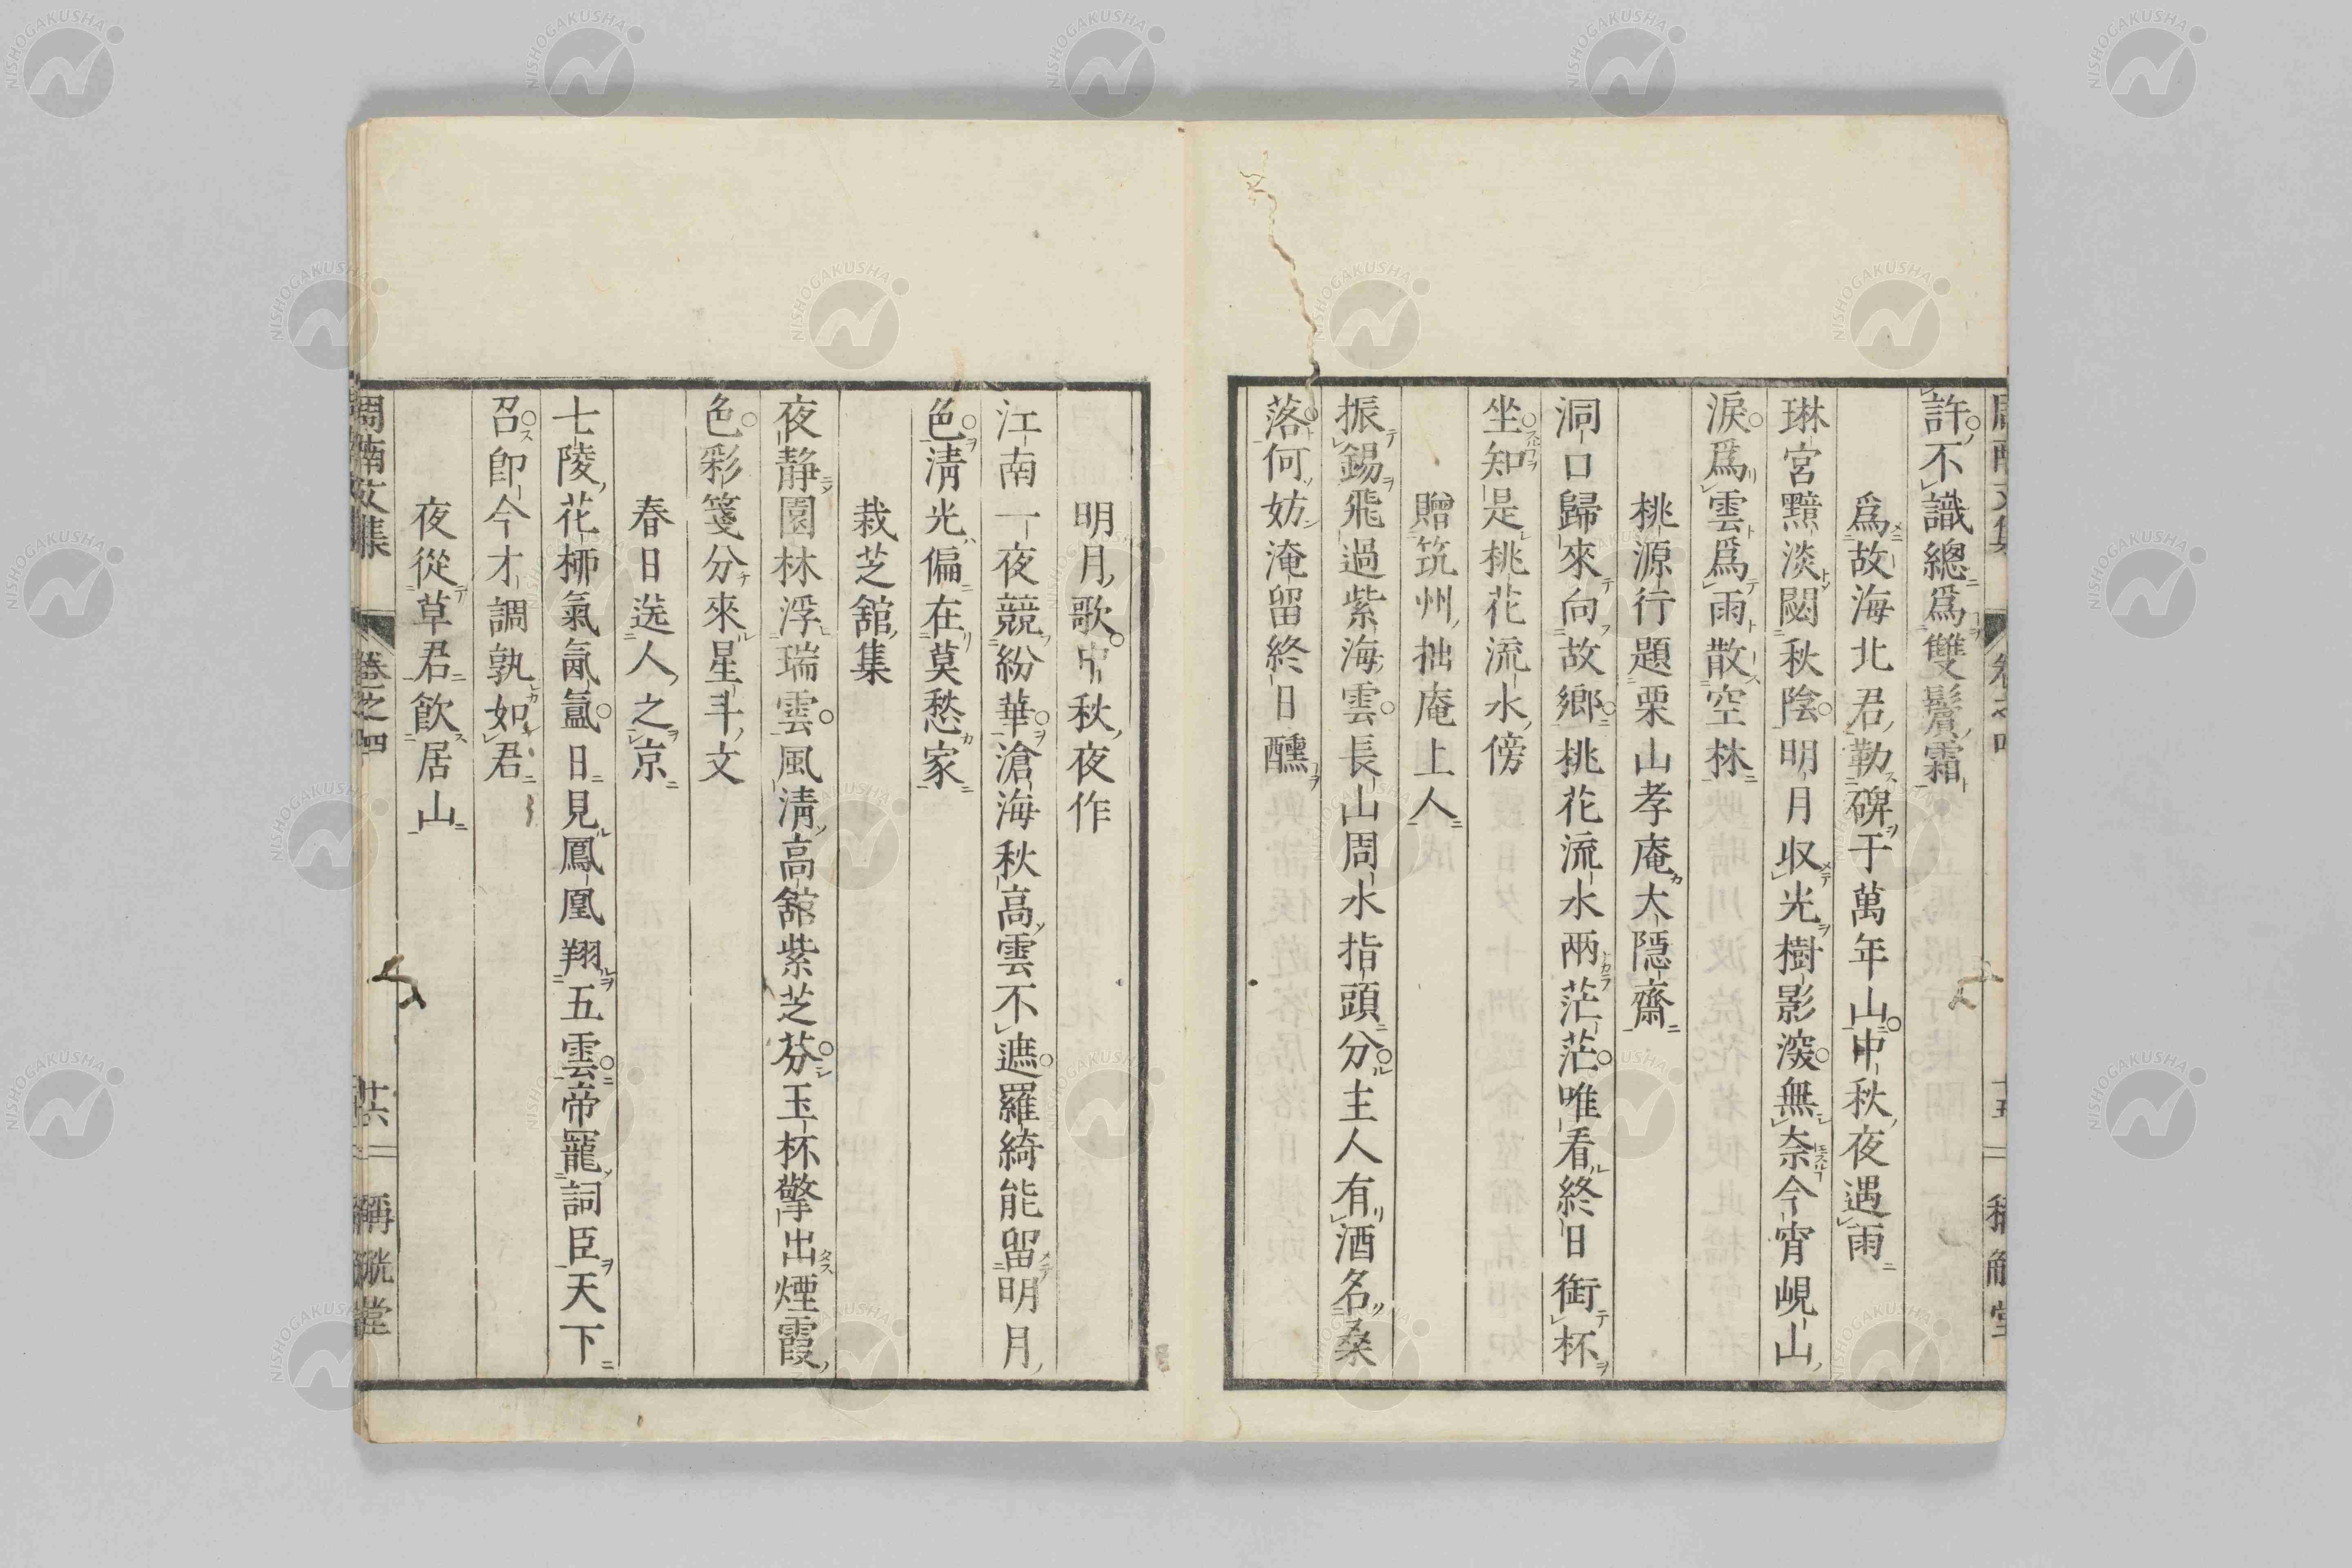 許不識總爲雙鬢霜
爲故海北君勒碑于萬年山中秋夜遇雨
琳宮黯淡閟秋陰明月收光樹影深無奈今宵峴山
淚爲雲爲雨散空林
桃源行題栗山孝庵大隱齋
洞口歸來向故鄉桃花流水兩茫茫唯看終日銜杯
坐知是桃花流水傍
贈筑州拙庵上人
振錫飛過紫海雲長山周水指頭分主人有酒名桑
落何妨淹留終日醺
明月歌中秋夜作
江南一夜競紛華滄海秋高雲不遮羅綺能留明月
色清光偏在莫愁家
栽芝舘集
夜靜園林浮瑞雲風清高舘紫芝芬玉杯擎出煙霞
色彩箋分來星斗文
春日送人之京
七陵花柳氣氤氳日見鳳凰翔五雲帝寵詞臣天下
召卽今才調孰如君
夜從草君飮居山
周南文集 卷之四 廿六 稱觥堂
NISHOGAKUSHA